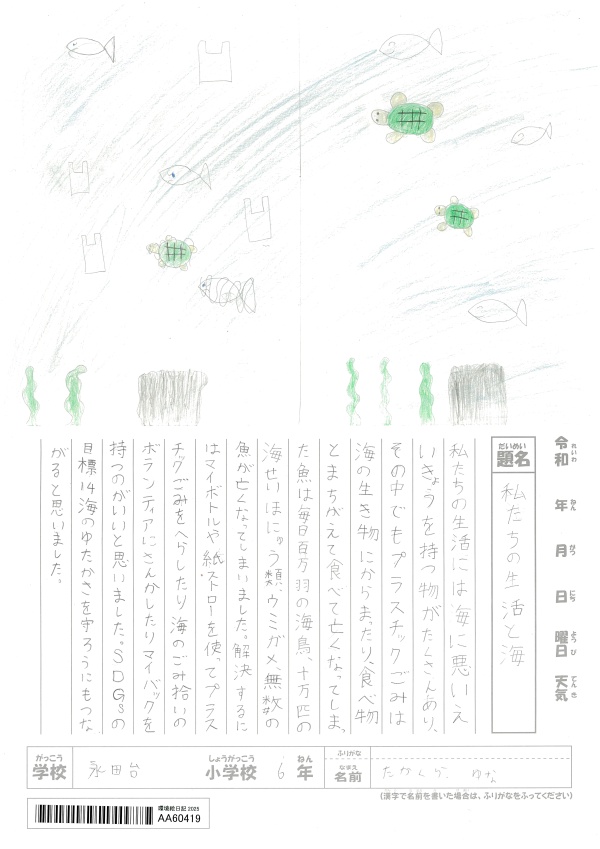 令和 年 月 日 曜日 天気
れいわ ねん がつ にち ようび てんき
だいめい
題名
私たちの生活と海
私たちの生活には海に悪いえ
いきょうを持つ物がたくさんあり、
その中でもプラスチックごみは
海の生き物にからまったり、食べ物
とまちがえて食べて亡くなってしま、
た魚は毎日百万羽の海鳥、十万匹の
海せいほにゅう類、ウミガメ、無数の
魚が亡くなってしまいました。解決するに
はマイボトルや紙ストローを使ってプラス
チックごみをへらしたり海のごみ拾いの
ボランティアにさんかしたりマイバックを
持つのがいいと思いました。SDGsの
目標14海のゆたかさを守ろうにもつな
がると思いました。
がっこう
学校
永田台
しょうがっこう
小学校
6
ねん
年
ふりがな
なまえ
名前
たかくら ゆな
(漢字で名前を書いた場合は、ふりがなをふってください)
環境絵日記 2025
AA60419